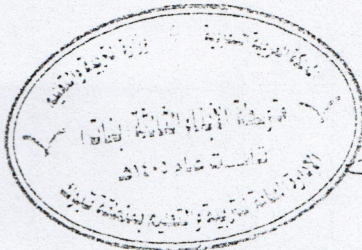 المملكة العربية السعودية
وزارة التربية والتعليم
متوسطة الأبناء الثالثة
تأسست عام
الإدارة العامة للتربية والتعليم بمنطقة تبوك